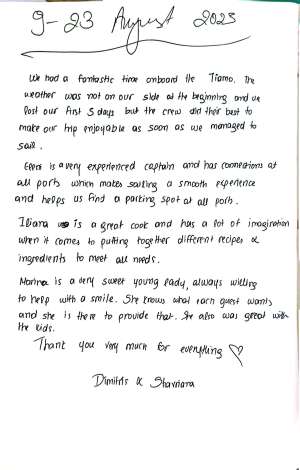 9-23 August 2025
We had a fantastic time onboard the Tiamo. The
weather was not on our side at the beginning and we
lost our first 5 days but the crew did their best to
make our trip enjoyable as soon as we managed to
sail.
is a very experienced captain and has connections at
all ports which makes sailing a smooth experience
and helps us find a parking spot at all ports.
Iliana is a great cook and has a lot of imagination
when it comes to putting together different recipes &
ingredients to meet all needs.
Marina is a very sweet young lady, always willing
to help with a smile. She knows what each guest wants
and she is there to provide that. She also was great with
the kids.
Thank you very much for everything ♡
Dimitris &